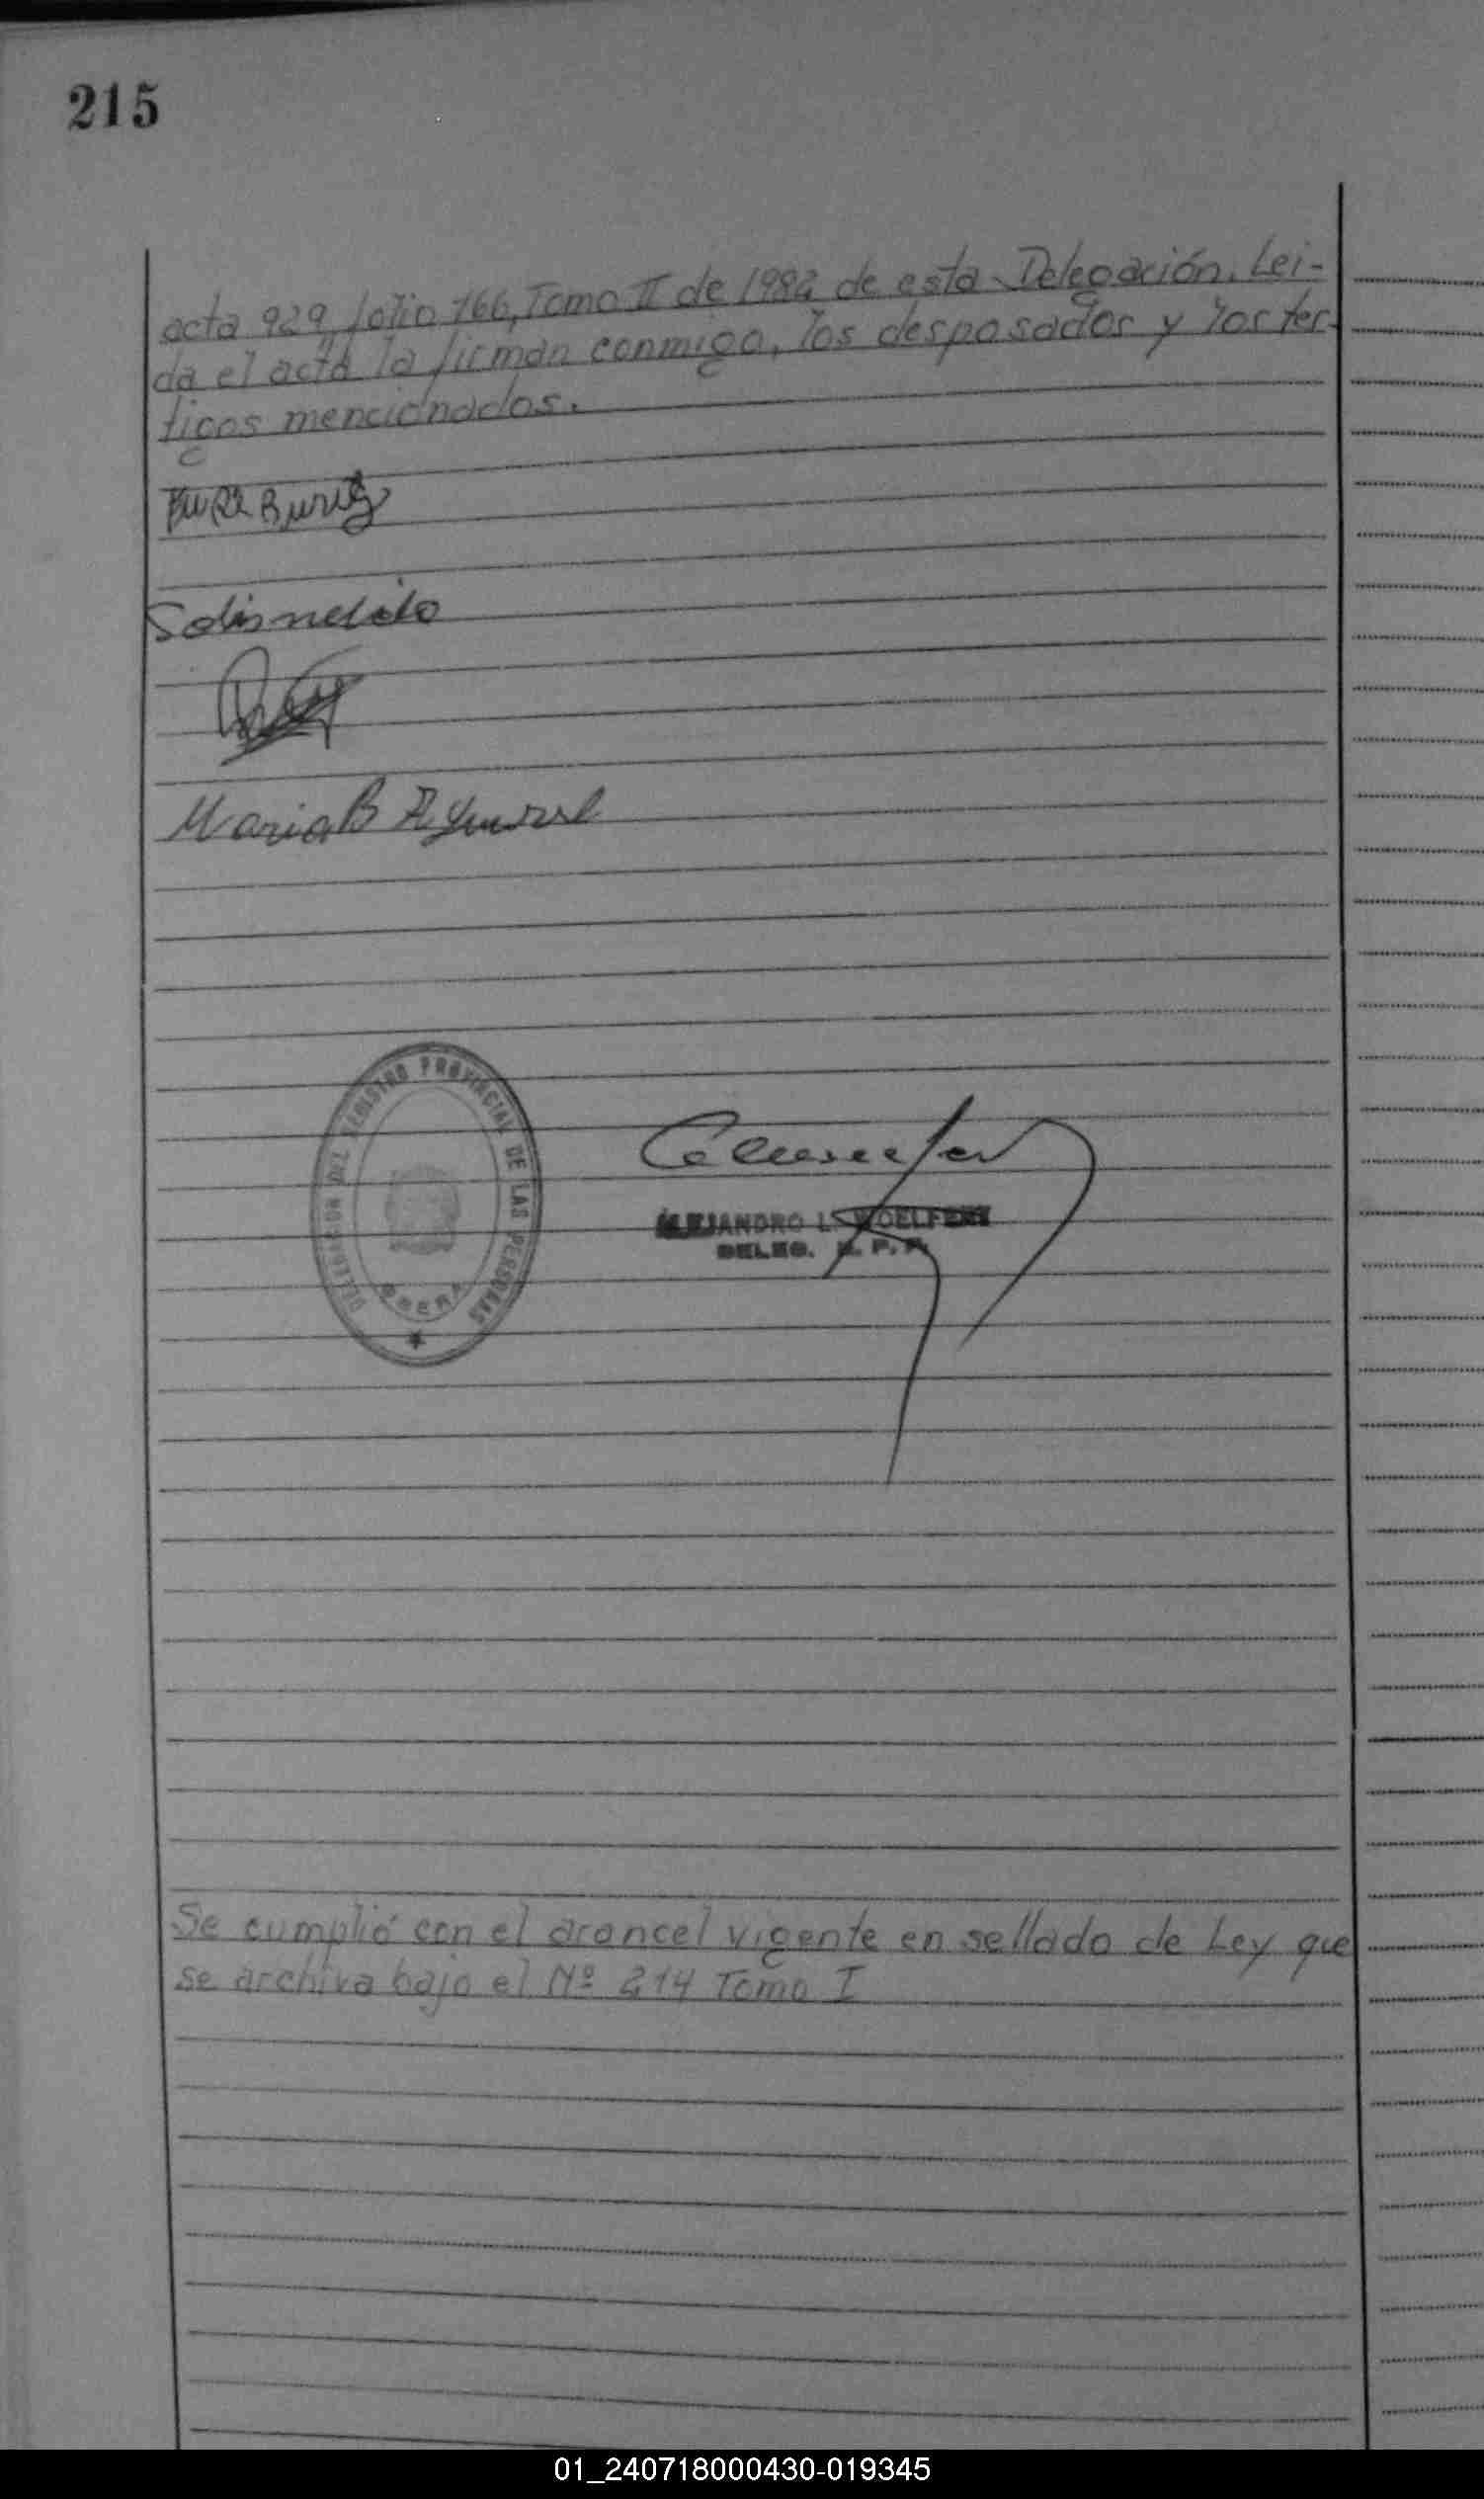 215
acta 929, folio 166, Tomo II de 1982 de esta Delegación. Lei-
da el acta la firman conmigo, los desposados y los tes-
tigos mencionados.
Maria B
DELEGACION DEL REGISTRO PROVINCIAL DE LAS PERSONAS
OBERA
ALEJANDRO L.
DELEG. R. P. P.
Se cumplió con el arancel vigente en sellado de Ley que
se archiva bajo el Nº 214 Tomo I
01_240718000430-019345